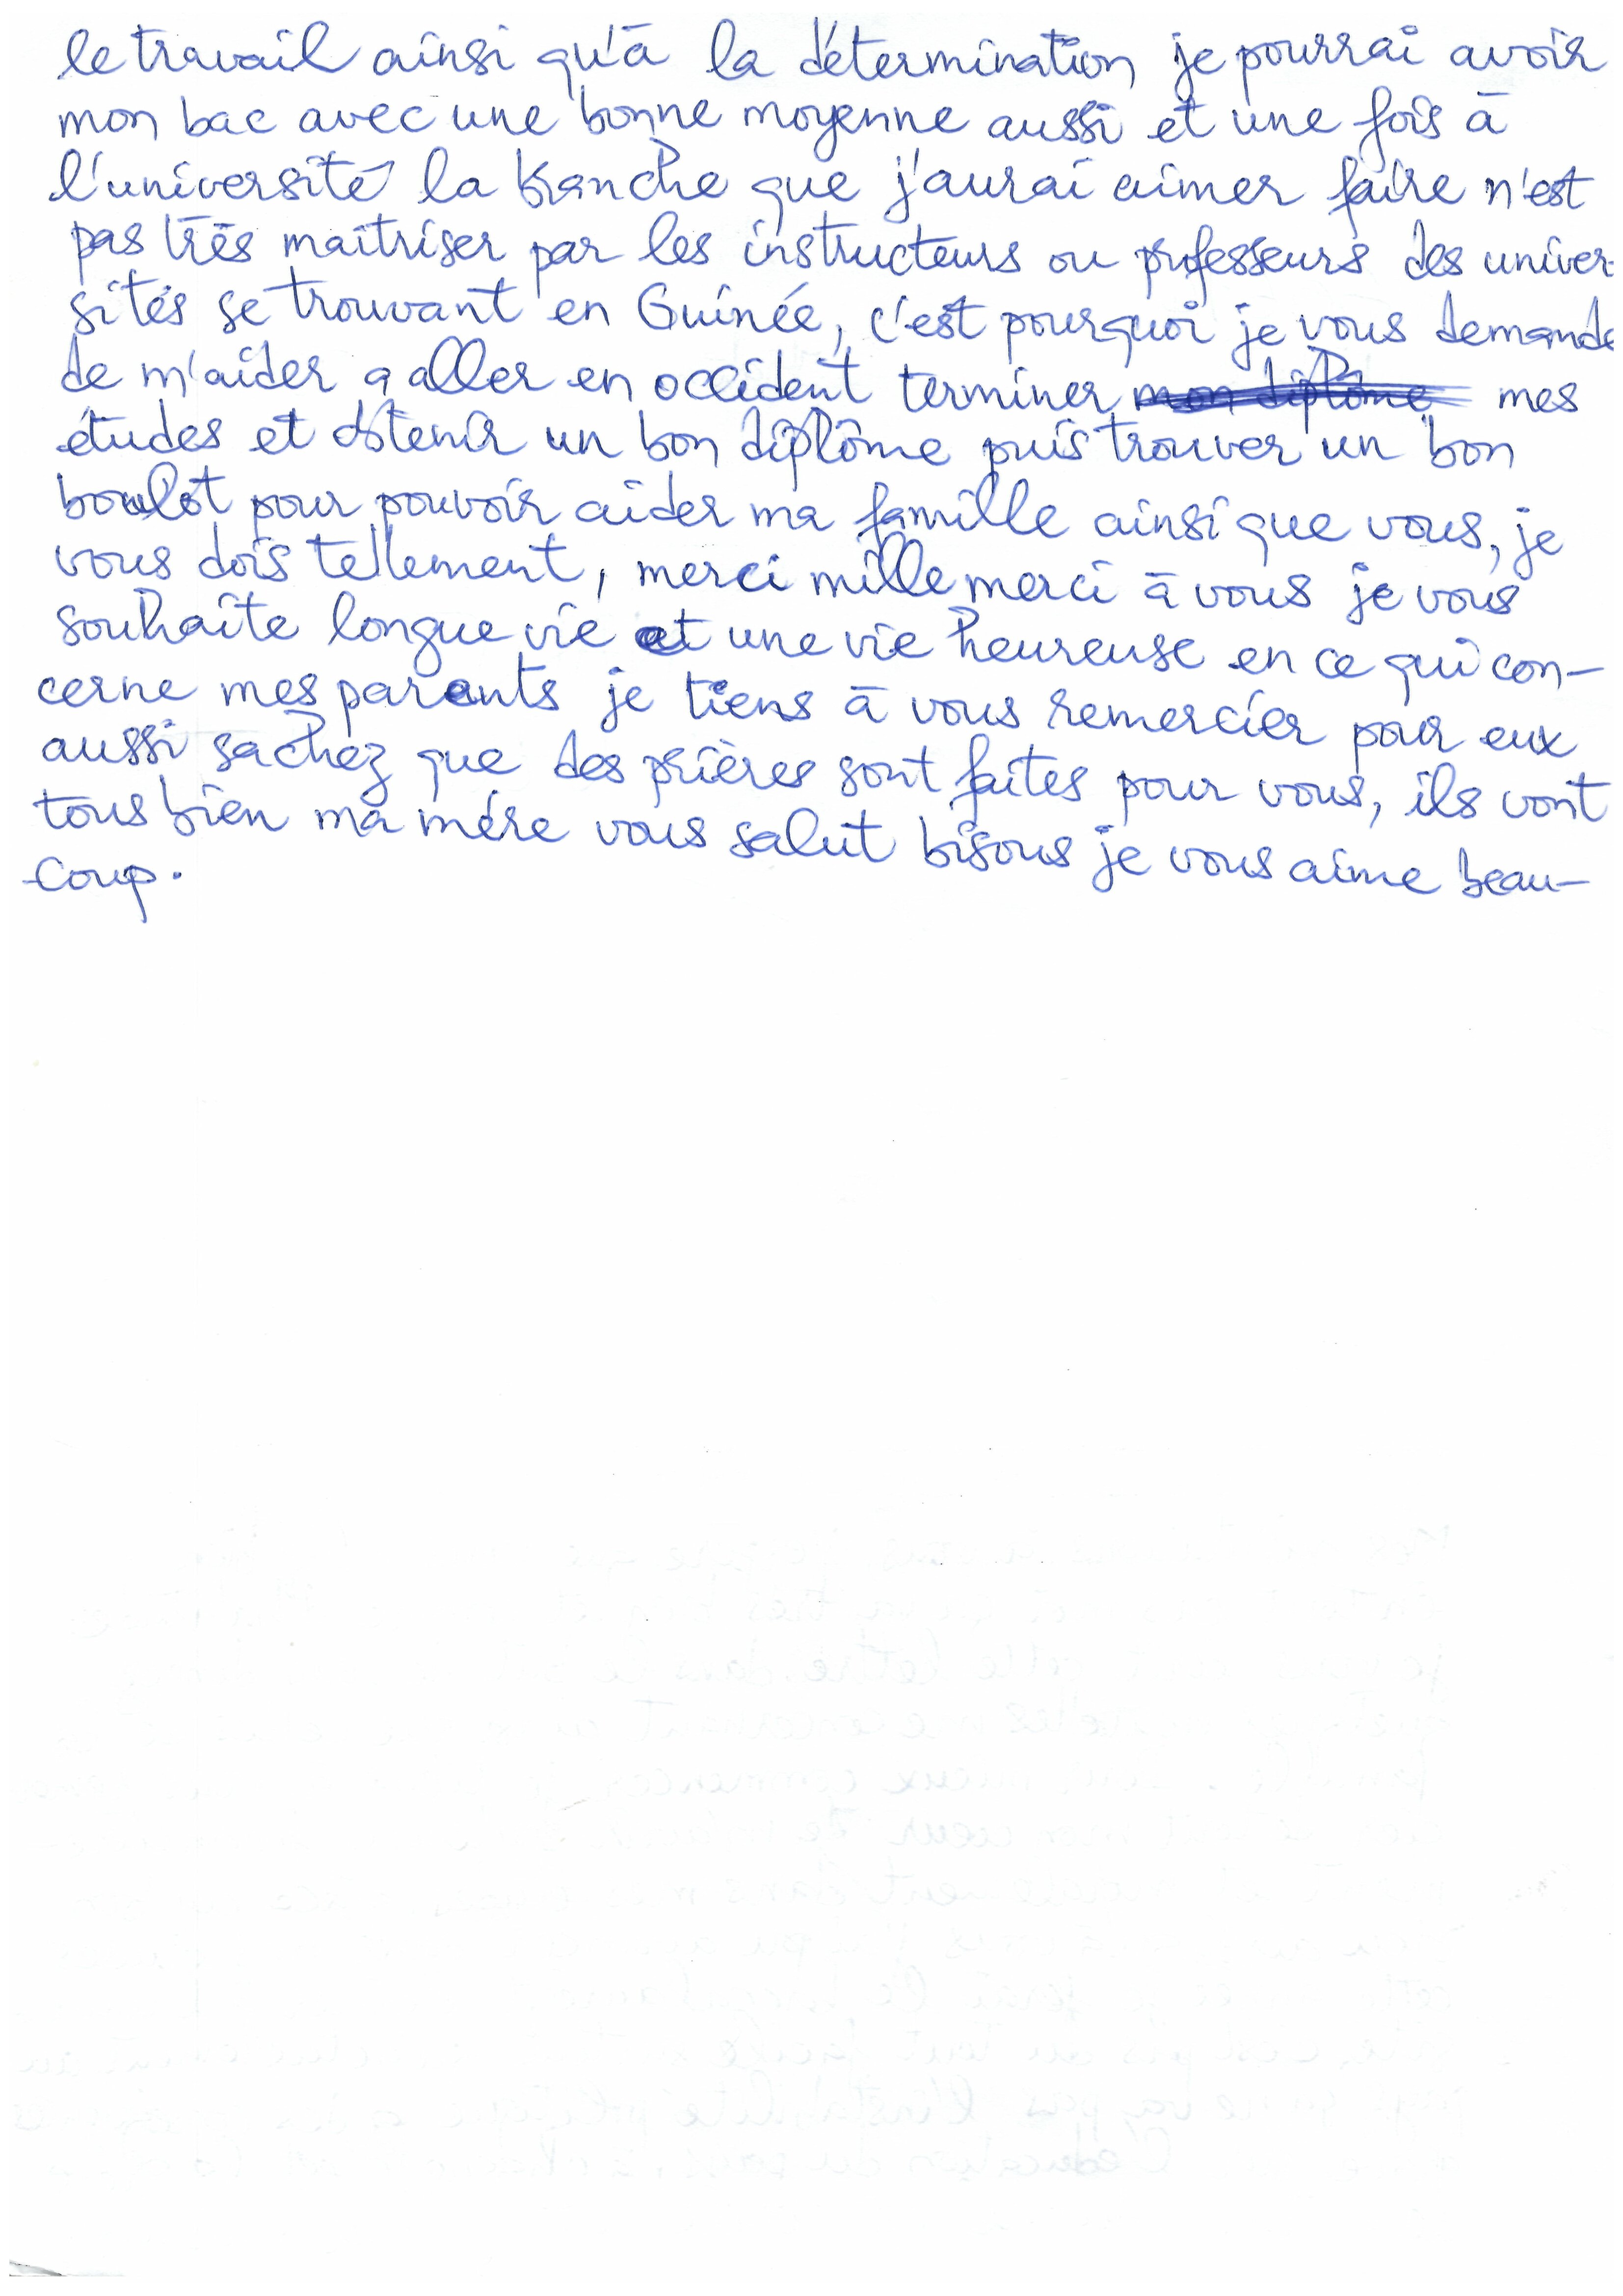 le travail ainsi qu'à la détermination je pourrai avoir
mon bac avec une bonne moyenne aussi et une fois à
l'université la branche que j'aurai aimer faire n'est
pas très maîtriser par les instructeurs ou professeurs des univer-
sités se trouvant en Guinée, c'est pourquoi je vous demande
de m'aider a aller en occident terminer mon diplôme mes
études et obtenir un bon diplôme puis trouver un bon
boulot pour pouvoir aider ma famille ainsi que vous, je
vous dois tellement, merci mille merci à vous je vous
souhaite longue vie et une vie heureuse en ce qui con-
cerne mes parents je tiens à vous remercier pour eux
aussi sachez que des prières sont faites pour vous, ils vont
tous bien ma mére vous salut bisous je vous aime beau-
coup.